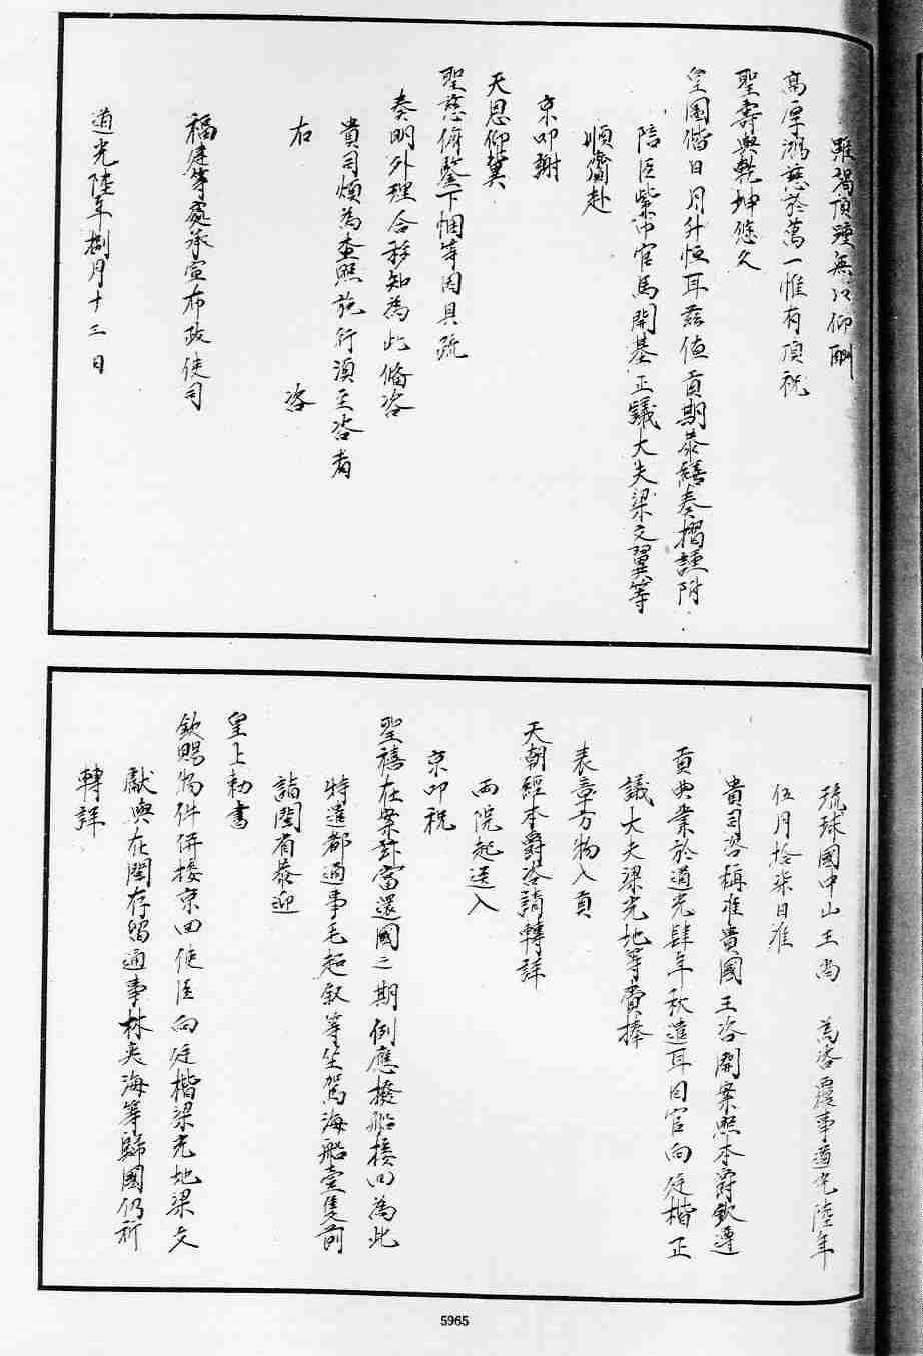 雖竭頂踵無以仰酬
高厚鴻慈於萬一惟有頂祝
聖壽與乾坤悠久
皇圖偕日月升恒耳茲值貢期恭繕奏摺謹附
陪臣紫巾官馬開基正議大夫梁文翼等
順齎赴
京叩謝
天恩仰冀
聖慈俯鑒下悃等因具疏
奏明外理合移知為此備咨
貴司煩為查照施行須至咨者
右 咨
福建等處承宣布政使司
道光陸年捌月十三日
琉球國中山王尚 為咨覆事道光陸年
伍月拾柒日准
貴司咨稱准貴國王咨開案照本爵欽遵
貢典業於道光肆年秋遣耳目官向廷楷正
議大夫梁光地等賫捧
表章方物入貢
天朝經本爵咨請轉詳
両院起送入
京叩祝
聖禧在案茲當還國之期例應撥船接回為此
特遣都通事毛起叙等坐駕海船壹隻前
詣閩省恭迎
皇上勅書
欽賜物件併接京回使臣向廷楷梁光地梁文
獻與在閩存留通事林奕海等歸國仍祈
轉詳
5965